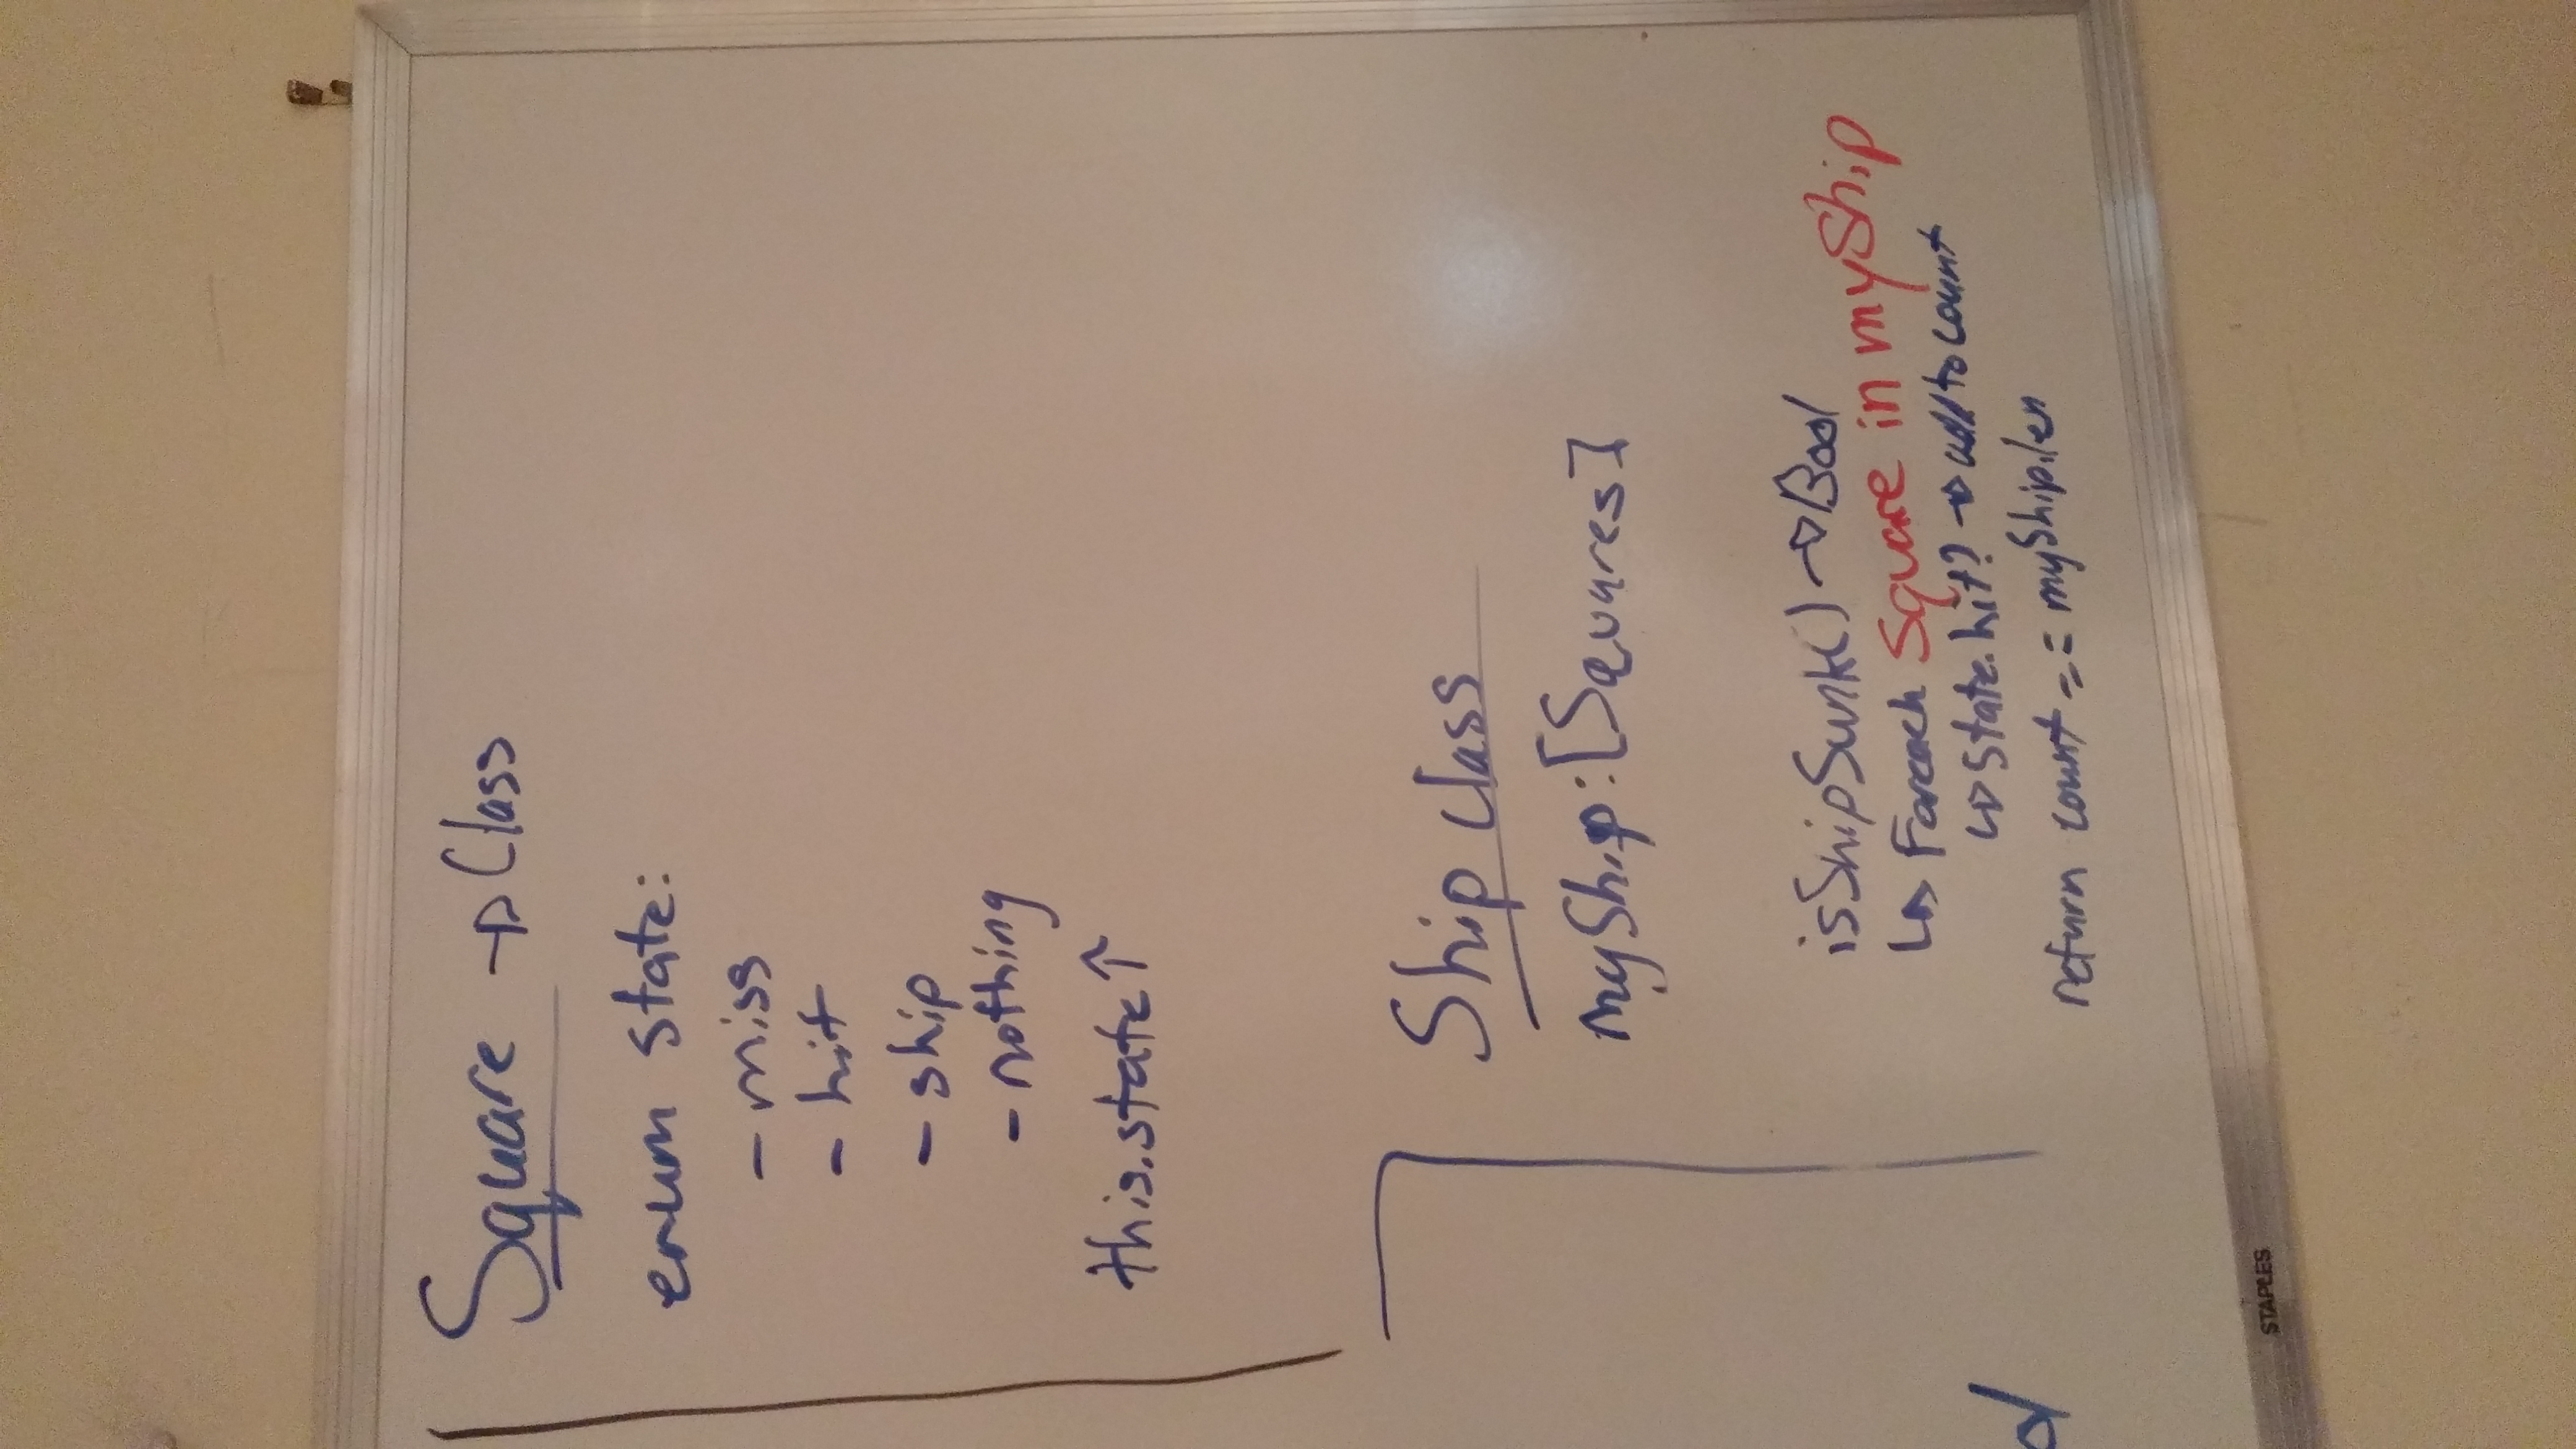 Square → Class
enum state:
- miss
- hit
- ship
- nothing
this.state ↑
Ship class
myShip:[Squares]
isShipSunk() → Bool
↳ Foreach Square in myShip
↳ state.hit? → add to count
return count == myShip.len
d
STAPLES